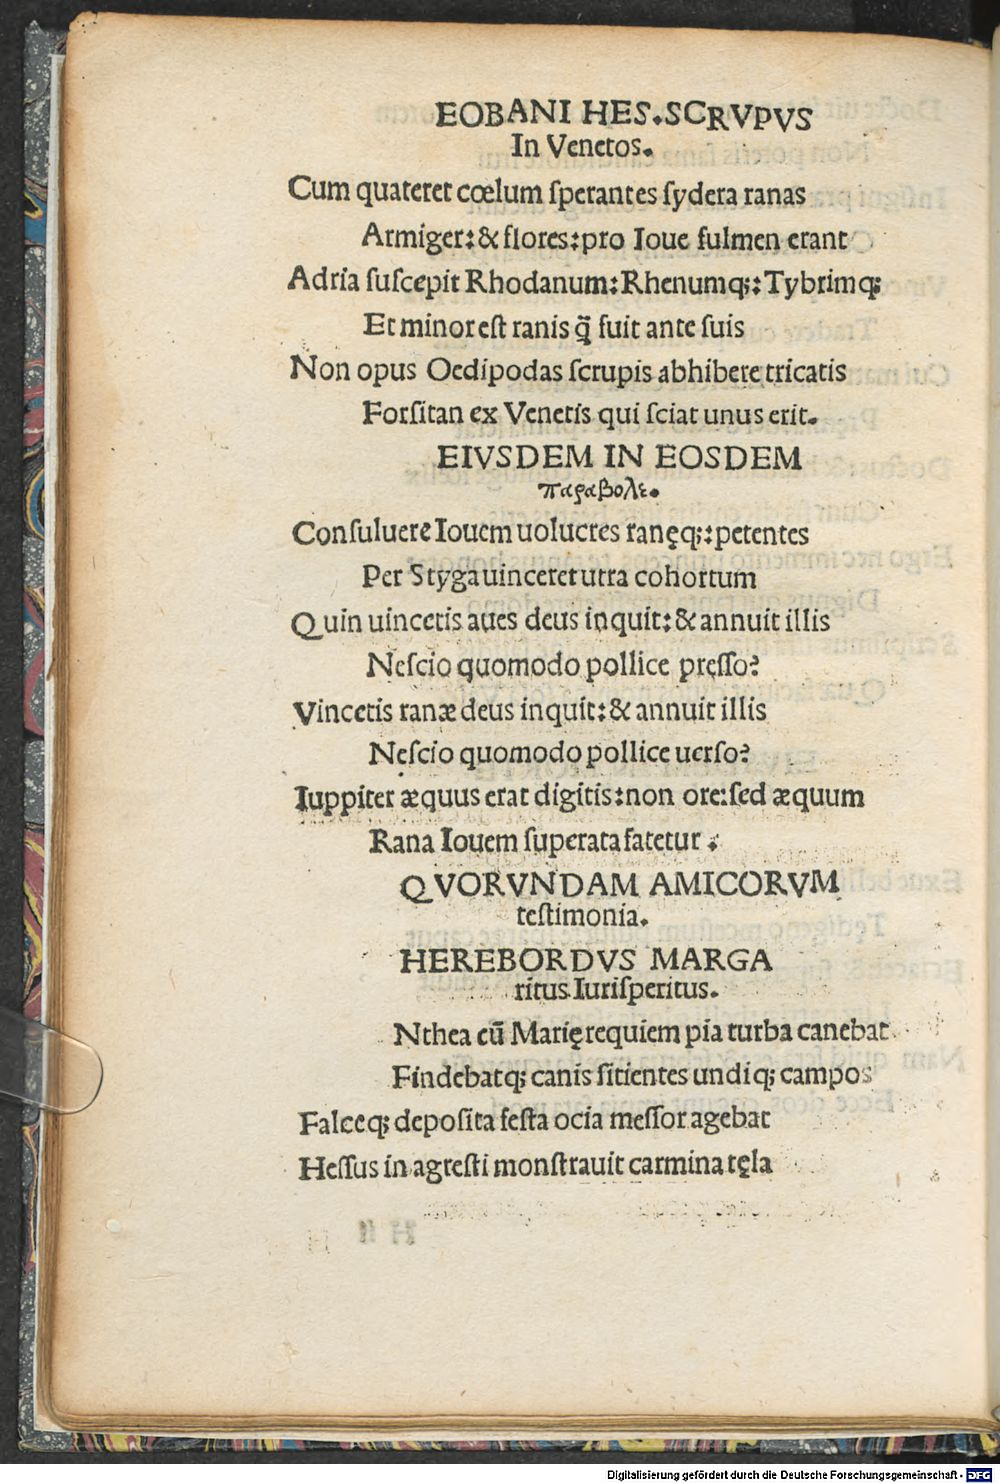 EOBANI HES.SCRVPVS
In Venetos.
Cum quateret cœlum ſperantes ſydera ranas
Armiger:& flores:pro Ioue fulmen erant
Adria ſuſcepit Rhodanum:Rhenumq;:Tybrimq;
Et minor eſt ranis q̃ fuit ante ſuis
Non opus Oedipodas ſcrupis abhibere tricatis
Forſitan ex Venetis qui ſciat unus erit.
EIVSDEM IN EOSDEM
παραβολε.
Conſuluere Iouem uolucres ranęq;:petentes
Per Styga uinceret utra cohortum
Quin uincetis aues deus inquit:& annuit illis
Neſcio quomodo pollice preſſo?
Vincetis ranæ deus inquit:& annuit illis
Neſcio quomodo pollice uerſo?
Iuppiter æquus erat digitis:non ore:ſed æquum
Rana Iouem ſuperata fatetur.
QVORVNDAM AMICORVM
teſtimonia.
HEREBORDVS MARGA
ritus Iuriſperitus.
Nthea cū Marię requiem pia turba canebat
Findebatq; canis ſitientes undiq; campos
Falceq; depoſita feſta ocia meſſor agebat
Heſſus in agreſti monſtrauit carmina tęla
Digitalisierung gefördert durch die Deutsche Forschungsgemeinschaft - DFG